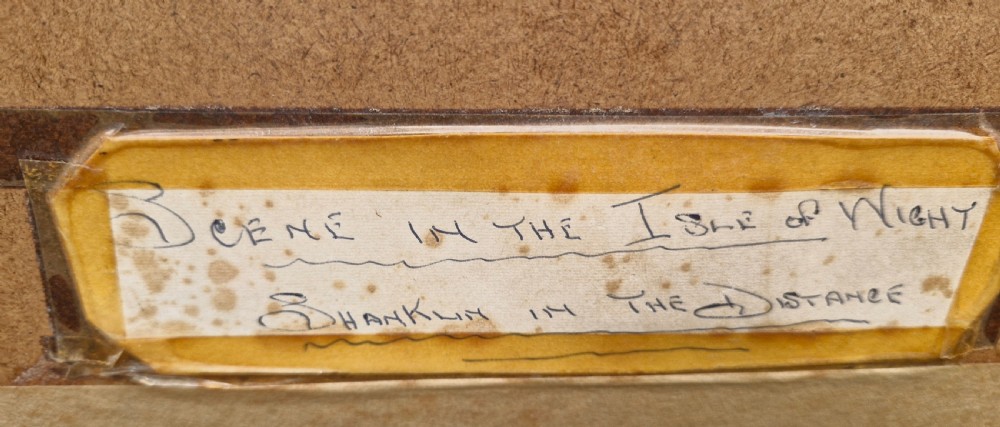 Scene in the Isle of Wight
Shanklin in the Distance